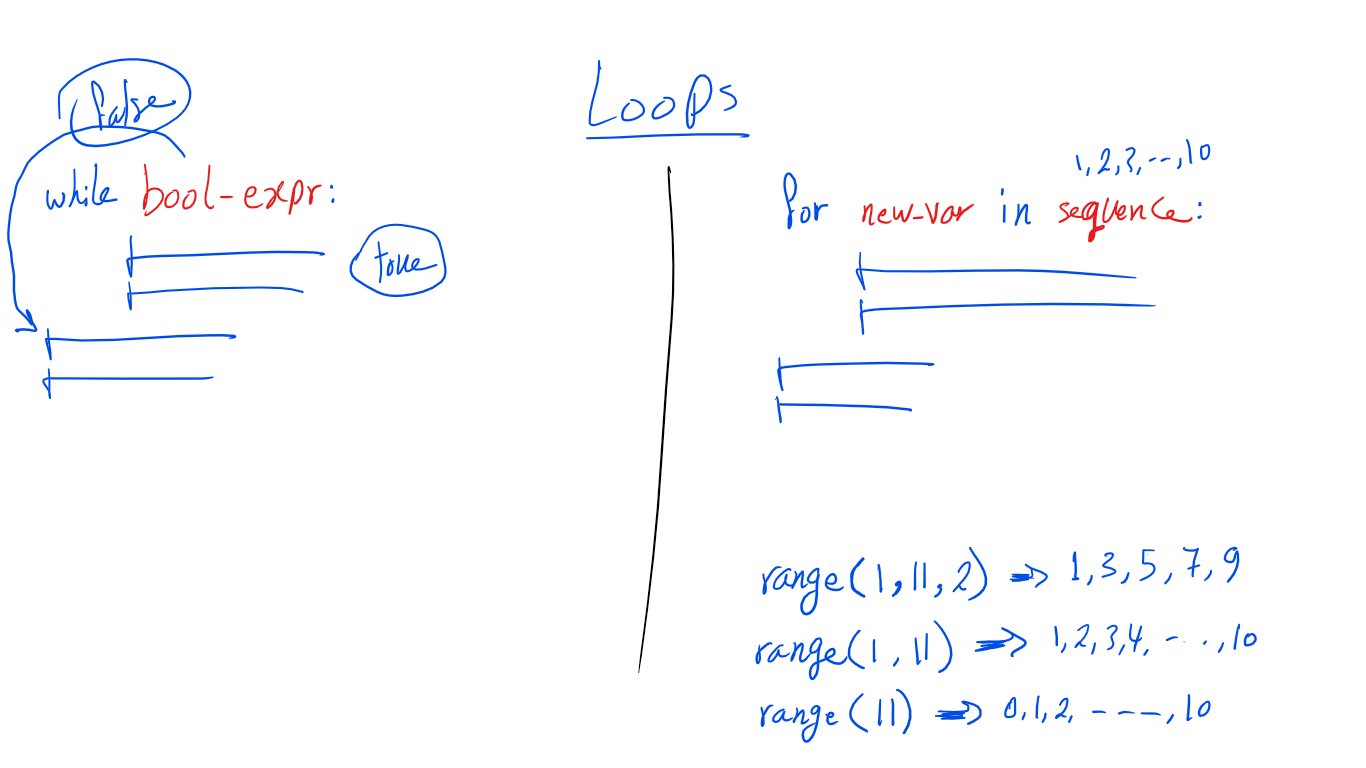 Loops
false
while bool-expr:
true
1, 2, 3, --, 10
for new-var in sequence:
range(1, 11, 2) => 1, 3, 5, 7, 9
range(1, 11) => 1, 2, 3, 4, - . ., 10
range(11) => 0, 1, 2, ----, 10